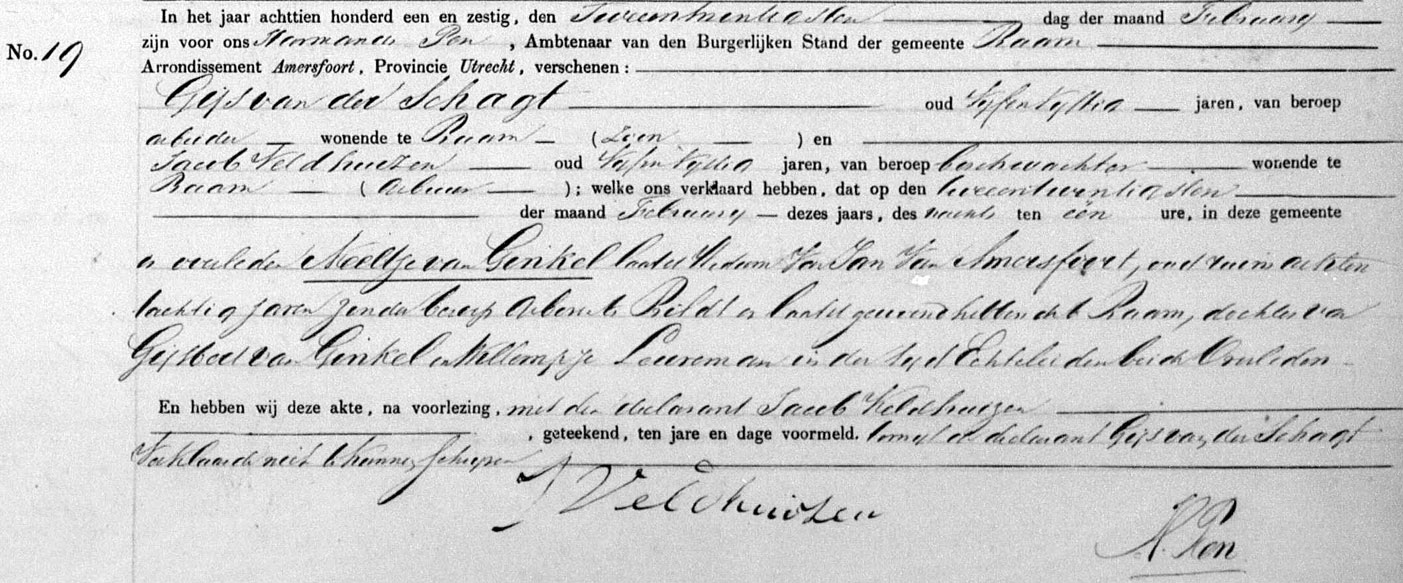 In het jaar achttien honderd een en zestig, den Tweeentwintigsten dag der maand February
No. 19
zijn voor ons Hermanus Pen, Ambtenaar van den Burgerlijken Stand der gemeente Baarn
Arrondissement Amersfoort, Provincie Utrecht, verschenen:
Gijs van der Schagt oud Vyfenvyftig jaren, van beroep
arbeider wonende te Baarn ( Zoon ) en
Jacob Veldhuizen oud Vyfenvyftig jaren, van beroep boschwachter wonende te
Baarn ( Gebuur ); welke ons verklaard hebben, dat op den tweeentwintigsten
der maand February dezes jaars, des nachts ten een ure, in deze gemeente
is overleden Neeltje van Ginkel laatst Weduwe Van Jan Van Amersfoort, oud ruim achten
tachtig jaren zonder beroep Geboren te Bildt en laatst gewoond hebbende te Baarn, dochter van
Gijsbert van Ginkel en Willempje Leureman in der tyd Echtelieden beide Overleden
En hebben wij deze akte, na voorlezing, met den declarant Jacob Veldhuizen
, geteekend, ten jare en dage voormeld. terwyl de declarant Gijs van der Schagt
Verklaarde niet te kunnen schryven
J Veldhuizen
H. Pen